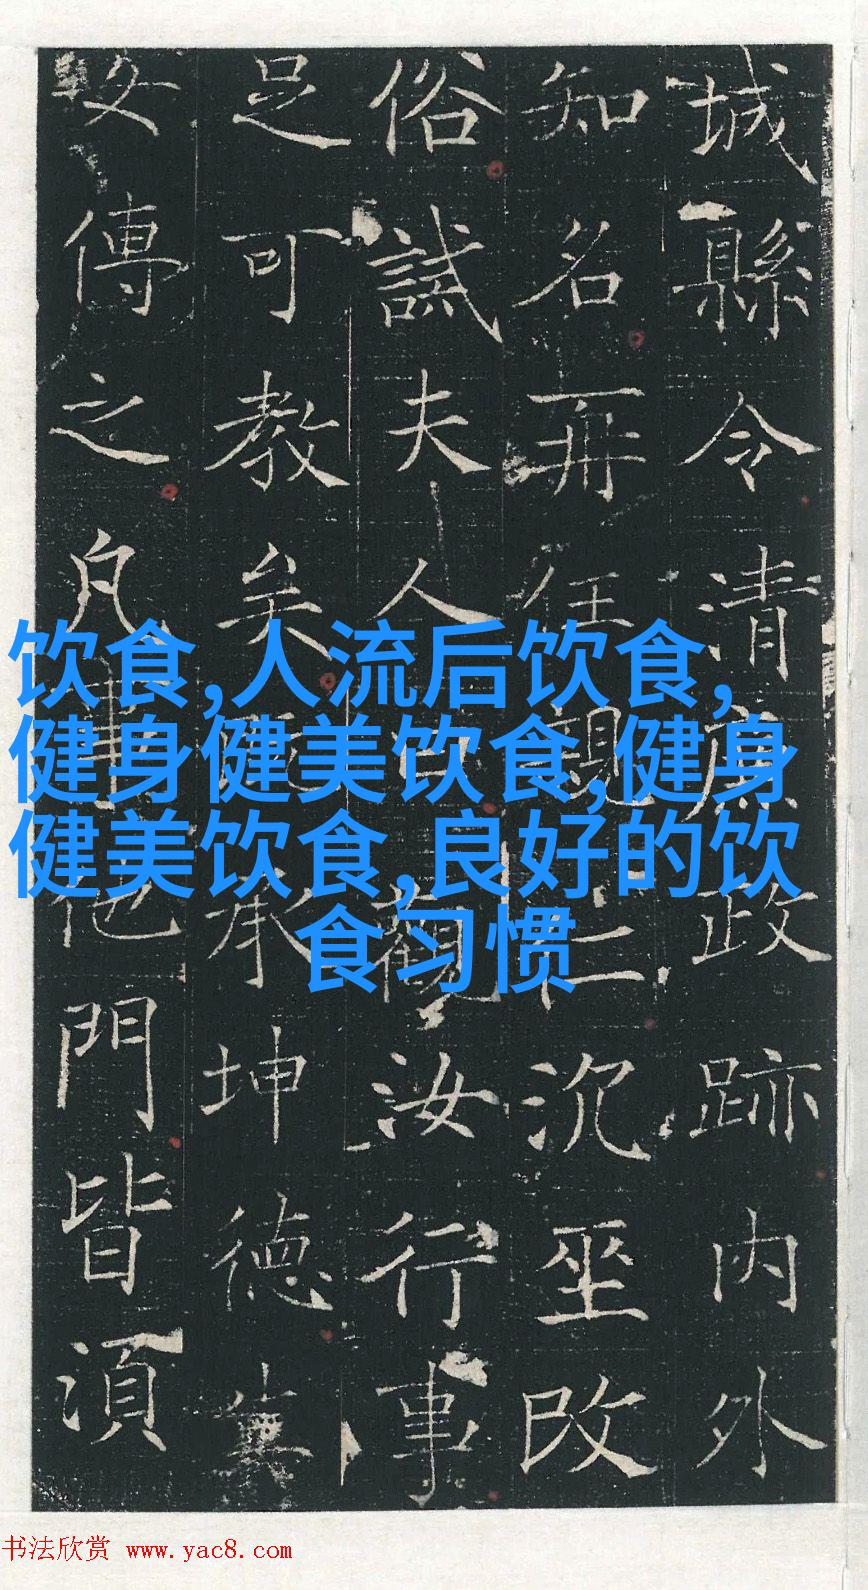 城縣令清廉政跡内外
知名再任親仁沉坐改
俗試夫人曰觀汝行事
足可教矣承坤德
傳之凡事他門皆須
饮食,人流后饮食,
健身健美饮食,健身
健美饮食,良好的饮
食习惯
书法欣赏 www.yac8.com